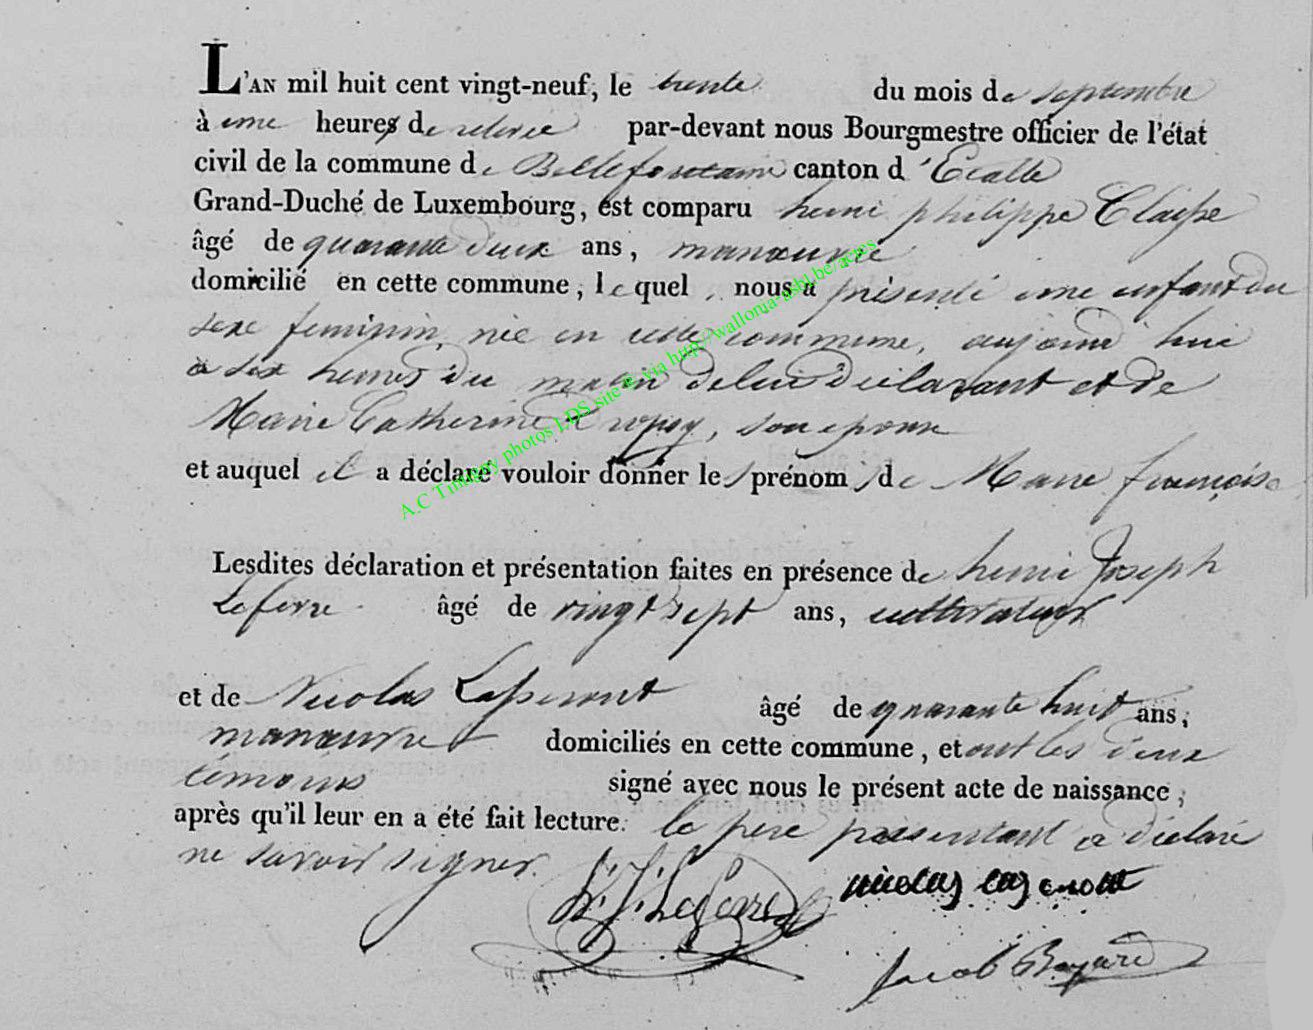 L'AN mil huit cent vingt-neuf, le trente du mois de septembre
à une heures de relevée par-devant nous Bourgmestre officier de l'état
civil de la commune de Bellefontaine canton d'Etalle
Grand-Duché de Luxembourg, est comparu henri philippe Claisse
âgé de quarante deux ans, manœuvre
domicilié en cette commune, lequel, nous a présenté une enfant du
sexe feminin, née en cette commune, aujourd'hui
à six heures du matin de lui déclarant et de
Marie Catherine son epouse
et auquel il a déclaré vouloir donner les prénoms de Marie françoise
Lesdites déclaration et présentation faites en présence de henri Joseph
Lefevre âgé de vingt sept ans, cultivateur
et de Nicolas Lasseront âgé de quarante huit ans,
manœuvre domiciliés en cette commune, et ont les deux
temoins signé avec nous le présent acte de naissance,
après qu'il leur en a été fait lecture. le pere présentant a déclaré
ne savoir signer.
H. J. Lefevre nicolas
Jacob Bayard
A.C Timmy photos LDS site & via http://wallonia-asbl.be/actes